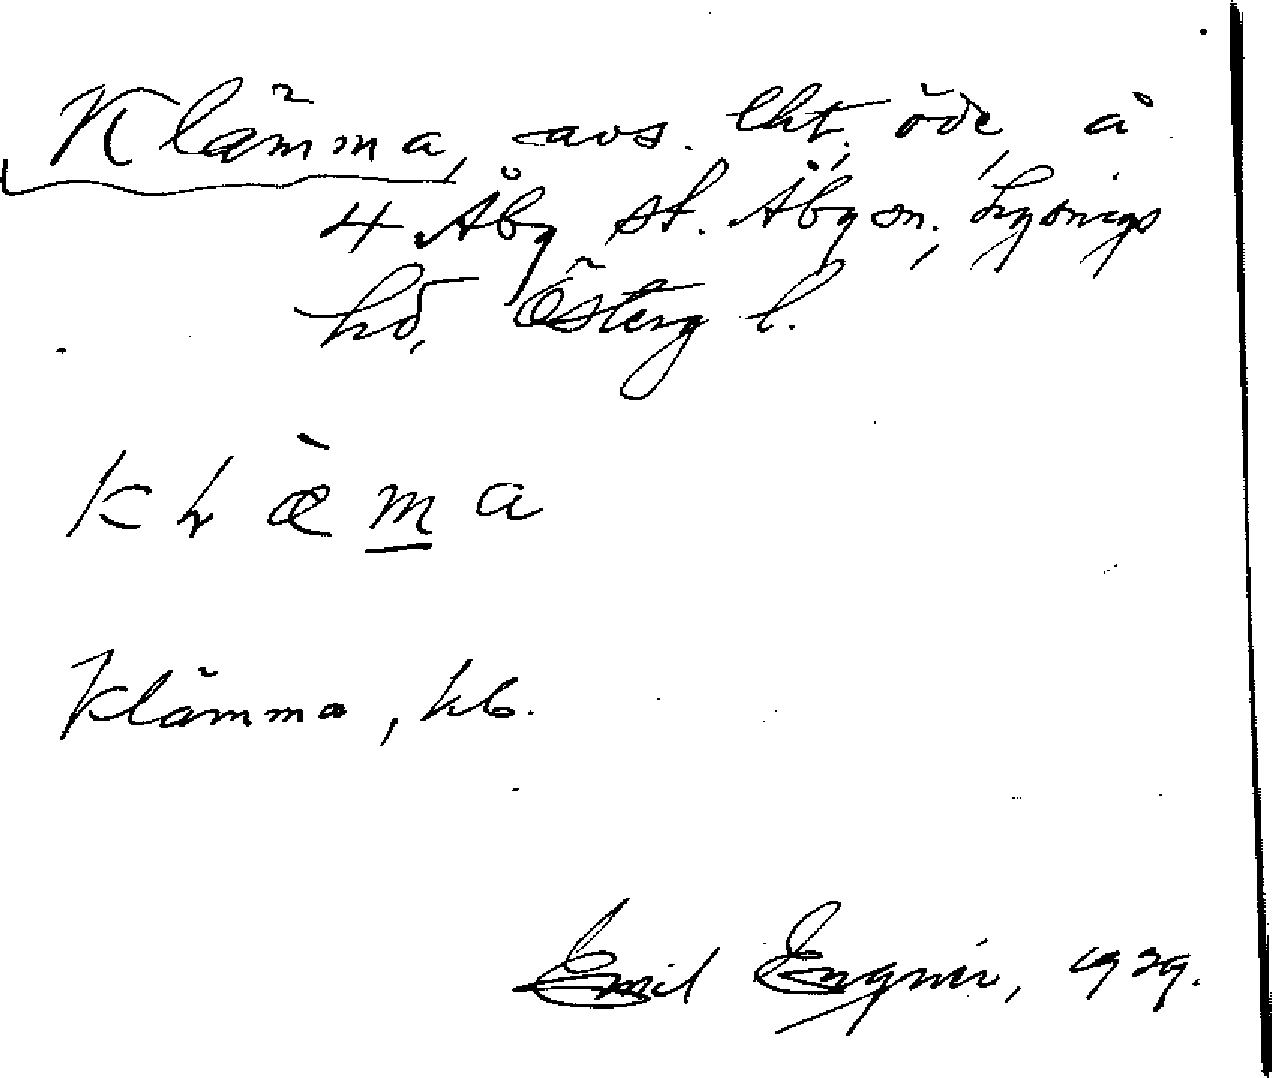 Klämma, avs. lht. öde, å
4 Åby st. Åby sn., Lysings
hd, Österg l.
k ł æ̀ m a
Klämma, kb.
Emil Engnér, 1929.